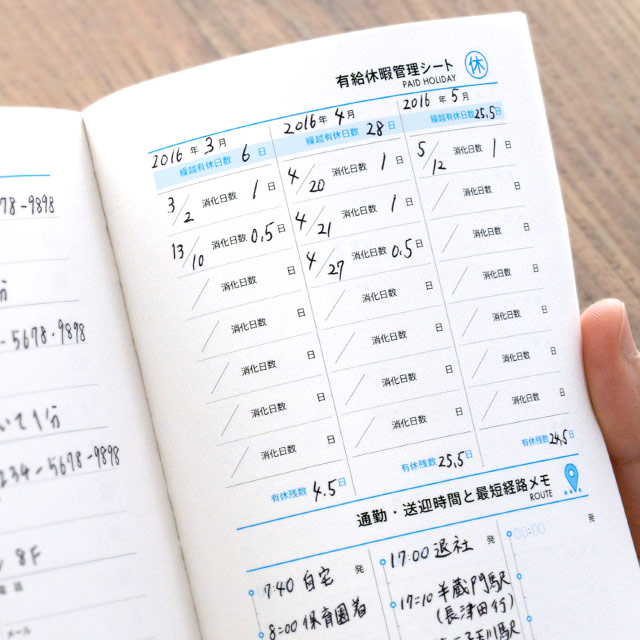 78-9898
分
-5678-9898
いて1分
1234-5678-9898
8F
電話
メール
有給休暇管理シート
PAID HOLIDAY
休
2016 年 3 月
繰越有休日数 6 日
3/2 消化日数 1 日
13/10 消化日数 0.5 日
/ 消化日数 日
/ 消化日数 日
/ 消化日数 日
/ 消化日数 日
/ 消化日数 日
有休残数 4.5 日
2016 年 4 月
繰越有休日数 28 日
4/20 消化日数 1 日
4/21 消化日数 1 日
4/27 消化日数 0.5 日
/ 消化日数 日
/ 消化日数 日
/ 消化日数 日
/ 消化日数 日
有休残数 25.5 日
2016 年 5 月
繰越有休日数 25.5 日
5/12 消化日数 1 日
/ 消化日数 日
/ 消化日数 日
/ 消化日数 日
/ 消化日数 日
/ 消化日数 日
/ 消化日数 日
有休残数 24.5 日
通勤・送迎時間と最短経路メモ
ROUTE
発
7:40 自宅
8:00 保育園着
発
17:00 退社
17:10 半蔵門駅
(長津田行)
子玉川駅
00:00
発